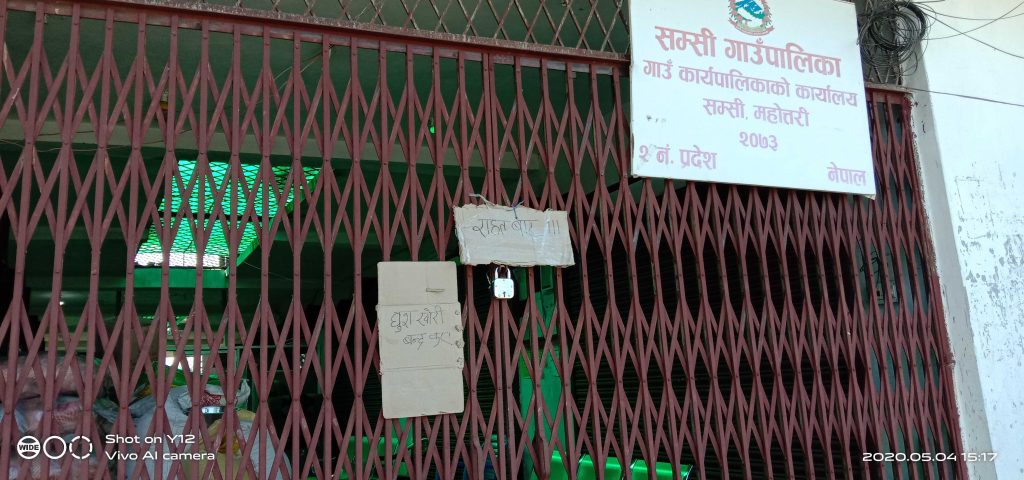 सम्सी गाउँपालिका
गाउँ कार्यपालिकाको कार्यालय
सम्सी, महोत्तरी
२०७३
२ नं. प्रदेश
नेपाल
राहत
घुस खोरी
बन्द कर
WIDE
Shot on Y12
Vivo AI camera
2020.05.04 15:17